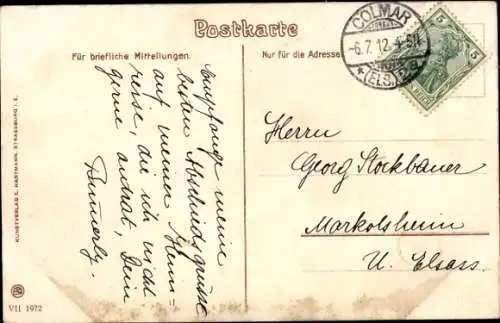 Postkarte
Für briefliche Mitteilungen.
Nur für die Adresse
COLMAR
-6.7.12.4-5N
(ELS.)
5
5
Empfange meine
besten Abschiedsgrüsse
auf meiner Heim=
reise, die ich nicht
gerne antrat, Dein
Herrn
Georg Stockbauer
Markolsheim
U. Elsass.
KUNSTVERLAG C. HARTMANN, STRASSBURG I. E.
VII 1972